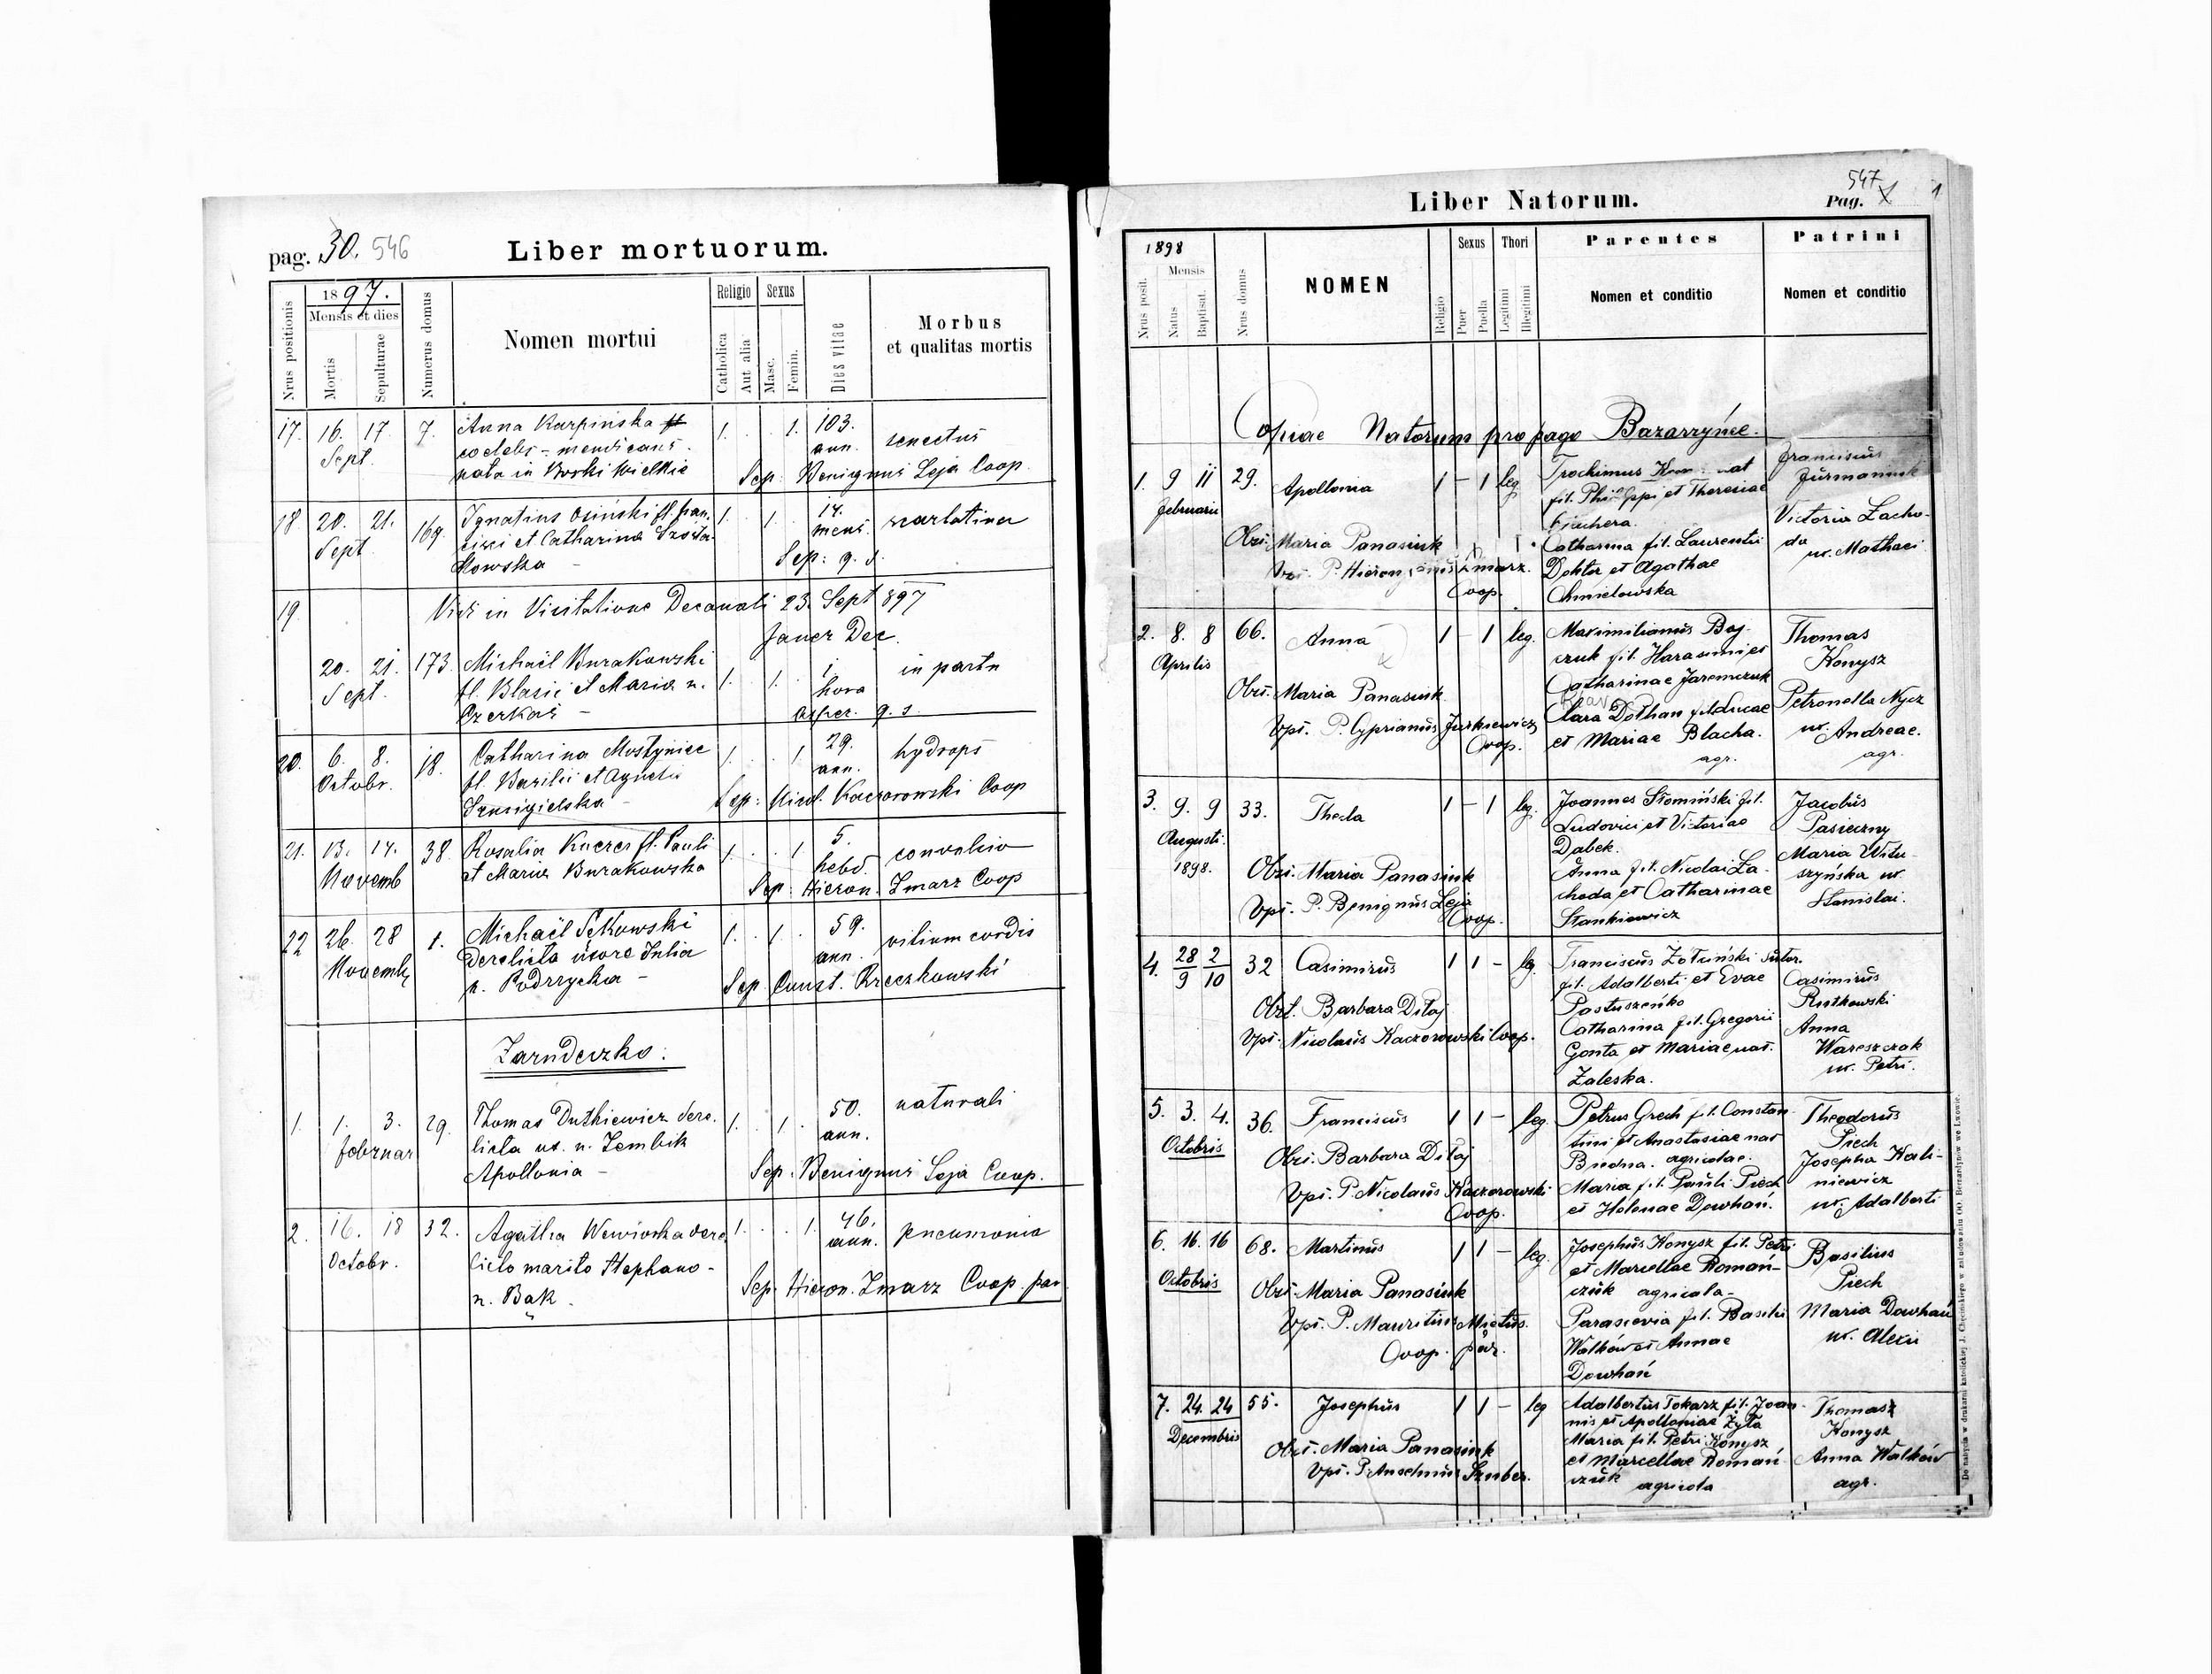 pag. 30. 546
Liber mortuorum.
Nrus positionis
1897.
Mensis et dies
Mortis
Sepulturae
Numerus domus
Nomen mortui
Religio
Catholica
Aut alia
Sexus
Masc.
Femin.
Dies vitae
Morbus
et qualitas mortis
17. 16. 17 7. Anna Karpinska 1. 1. 103. senectus
Sept. coelebs - mendicans ann.
nata in Borki Wielkie Sep: Benignus Leja Coop.
18. 20. 21. 169. Ignatius Osinski fl. Fran- 1. 1. 14. scarlatina
Sept. cisci et Catharina mens.
kowska - Sep: q. s.
19. Vidi in Visitatione Decanali 23. Sept 897
Janer Dec.
20. 21. 173. Michaël Burakowski 1. 1. 1. in partu
Sept. fl. Blasii et Maria n. hora
Czerkas - q. s.
20. 6. 8. 18. Catharina Mostyniec 1. 1. 29. hydrops
Octobr. fl. Basilii et Agnetis ann.
Sep: Nicol. Kaczorowski Coop
21. 13. 14. 38. Rosalia Kaczor fl. Pauli 1. 1 5. convulsio
Novemb et Maria Burakowska hebd.
Sep: Hieron. Zmarz Coop
22 26. 28 1. Michaël 1. 1. 59. vitium cordis
Novemb derelicta uxore Julia ann.
n. Podrzycka - Sep Const. Rzeczkowski
Zarudeczko.
1. 1. 3. 29. Thomas Dutkiewicz dere- 1. 1. 50. naturali
februar licta ux. n. Zembik ann.
Apollonia - Sep. Benignus Leja Coop.
2. 16. 18 32. Agatha Wewiorka dere- 1. 1. 46. pneumonia
Octobr. licto marito Stephano - ann.
n. Bąk. Sep. Hieron. Zmarz Coop. par
547
Liber Natorum. Pag. 1
1898
Nrus posit.
Mensis
Natus
Baptisat.
Nrus domus
NOMEN
Religio
Sexus
Puer
Puella
Thori
Legitimi
Illegitimi
Parentes
Nomen et conditio
Patrini
Nomen et conditio
Copiae Natorum pro pago Bazarzyńce.
1. 9 11 29. Apollonia 1 - 1 leg. Trochimus Franciscus
Februarii fil. Philippi et Theresiae Furmaniuk
Obs. Maria Panasiuk Catharina fil. Laurentii Victoria Zacho-
Bps. P. Hieronymus Zmarz. Doktor et Agathae da
Coop. Chmielowska ux. Mathaei
2. 8. 8 66. Anna 1 - 1 leg. Maximilianus Baj- Thomas
Aprilis czuk fil. Harasimi et Konysz
Obs. Maria Panasiuk Catharinae Jaremczuk
Bps. P. Cyprianus Jurkiewicz Clara Dołhan fil. Lucae Petronella Nycz
Coop. et Mariae Blacha. ux. Andreae.
agr. agr.
3. 9. 9 33. Thecla 1 - 1 leg. Joannes Słomiński fil. Jacobus
Augusti. Ludovici et Victoriae Pasieczny
1898. Dąbek. Maria Witu-
Obs. Maria Panasiuk Anna fil. Nicolai Za- szyńska ux.
Bps. P. Benignus Leja choda et Catharinae Stanislai.
Coop. Stankiewicz
4. 28/9 2/10 32 Casimirus 1 1 - leg. Franciscus Żołtuński sutor. Casimirus
fil. Adalberti et Evae Rutkowski
Obst. Barbara Diłaj Pastuszeńko Anna
Bps. Nicolaus Kaczorowski Coop. Catharina fil. Gregorii Wareszczak
Gonta et Mariae nat. ux. Petri.
Zaleska.
5. 3. 4. 36. Franciscus 1 1 - leg. Petrus Grech fil. Constan- Theodorus
Octobris tini et Anastasiae nat Piech
Obs. Barbara Diłaj Biedna. agricolae. Josepha Kali-
Bps. P. Nicolaus Kaczorowski Maria fil. Pauli Piech niewicz
Coop. et Helenae Dowhań. ux. Adalberti
6. 16. 16 68. Martinus 1 1 - leg. Josephus Konysz fil. Petri Basilius
Octobris et Marcellae Romań- Piech
Obs. Maria Panasiuk czuk agricola - Maria Dowhań
Bps. P. Mauritius Miętus. Parascevia fil. Basilii ux. Alexii
Coop. par. Wałków et Annae
Dowhań
7. 24. 24 55. Josephus 1 1 - leg Adalbertus Tokarz fil. Joan- Thomasz
Decembris nis et Apolloniae Żyła Konysz
Obs. Maria Panasiuk Maria fil. Petri Konysz Anna Wałków
Bps. P. Anselmus Szuber. et Marcellae Romań- agr.
czuk agricola
Do nabycia w drukarni katolickiej J. Chęcińskiego w zabudowaniu OO. Bernardynów we Lwowie.